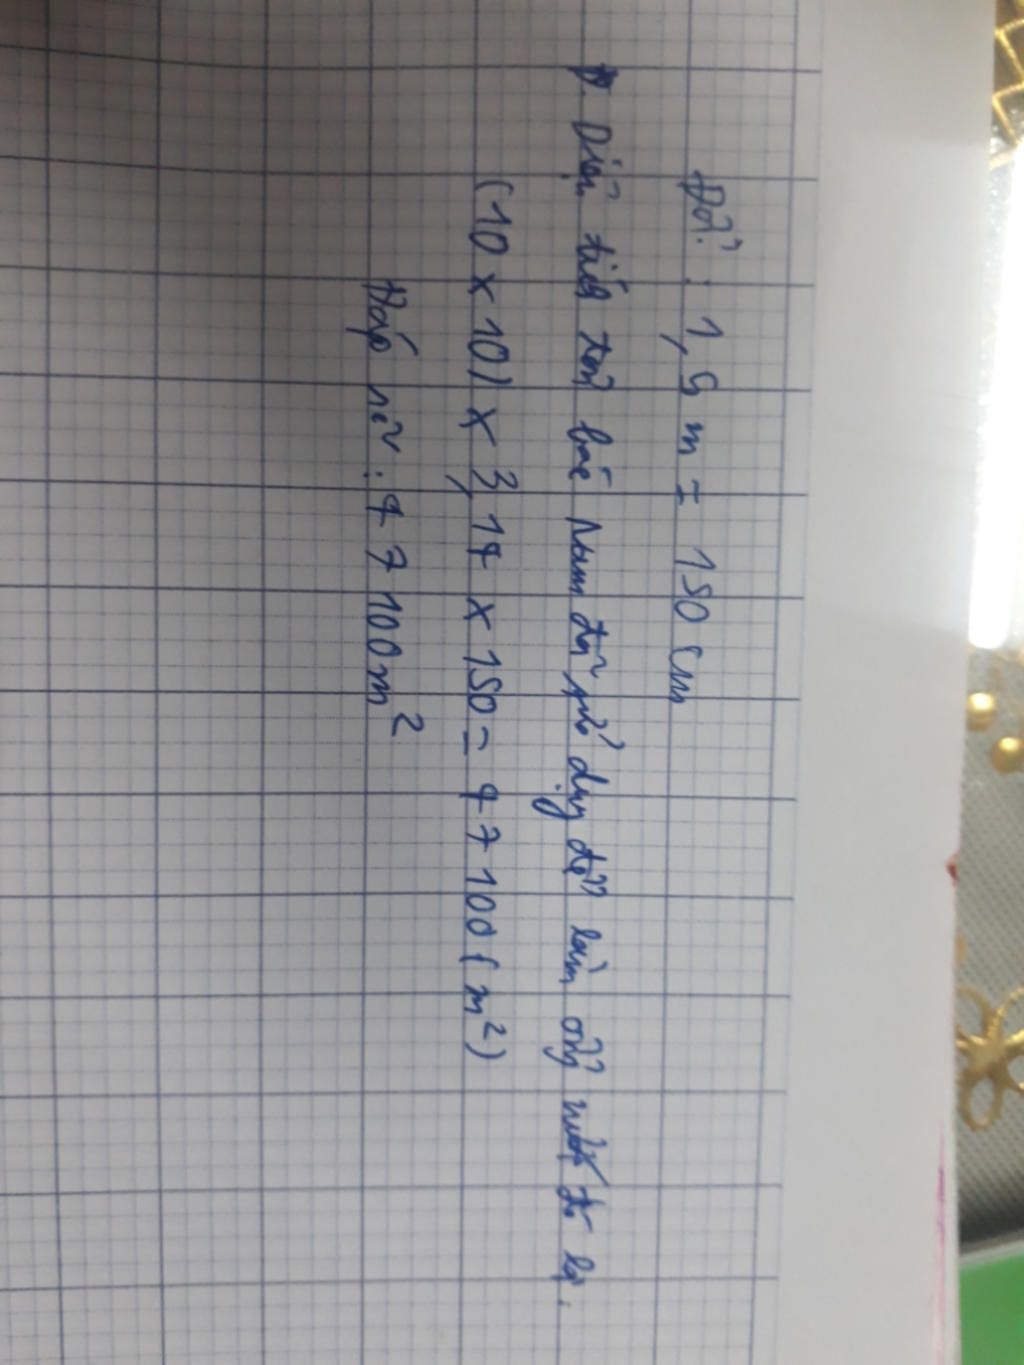 Đổi : 1,5 m = 150 cm
Diện tích tôn bác Nam đã sử dụng để làm ống nước đó là :
(10 x 10) x 3,14 x 150 = 47100 (m²)
Đáp số : 47100m²